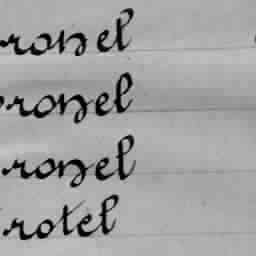 ronel
oronel
ronel
rotel